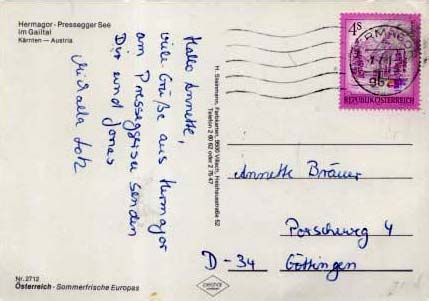 Hermagor - Pressegger See
im Gailtal
Kärnten — Austria
Hallo Annette,
viele Grüße aus Hermagor
am Pressegersee senden
Dir und Jonas
H. Steinmann, Farbkarten, 9500 Villach, Heidnaustraße 52
4S
HERMAGOR
REPUBLIK ÖSTERREICH
Annette Bräuer
Porscheweg 4
D-34 Göttingen
Nr. 2712
Österreich - Sommerfrische Europas